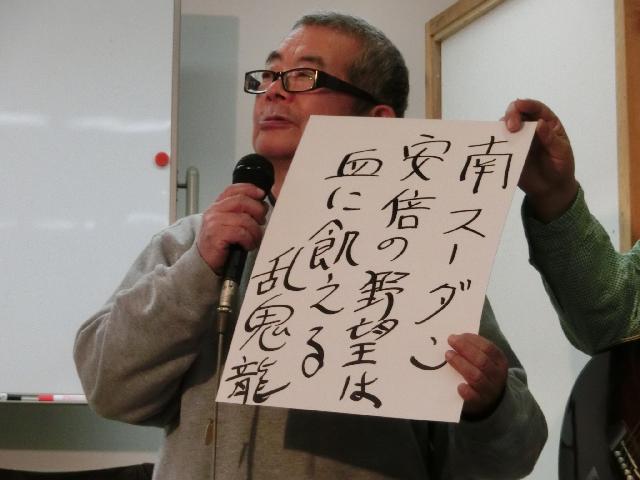 南スーダン
安倍の野望は
血に飢える
乱鬼龍